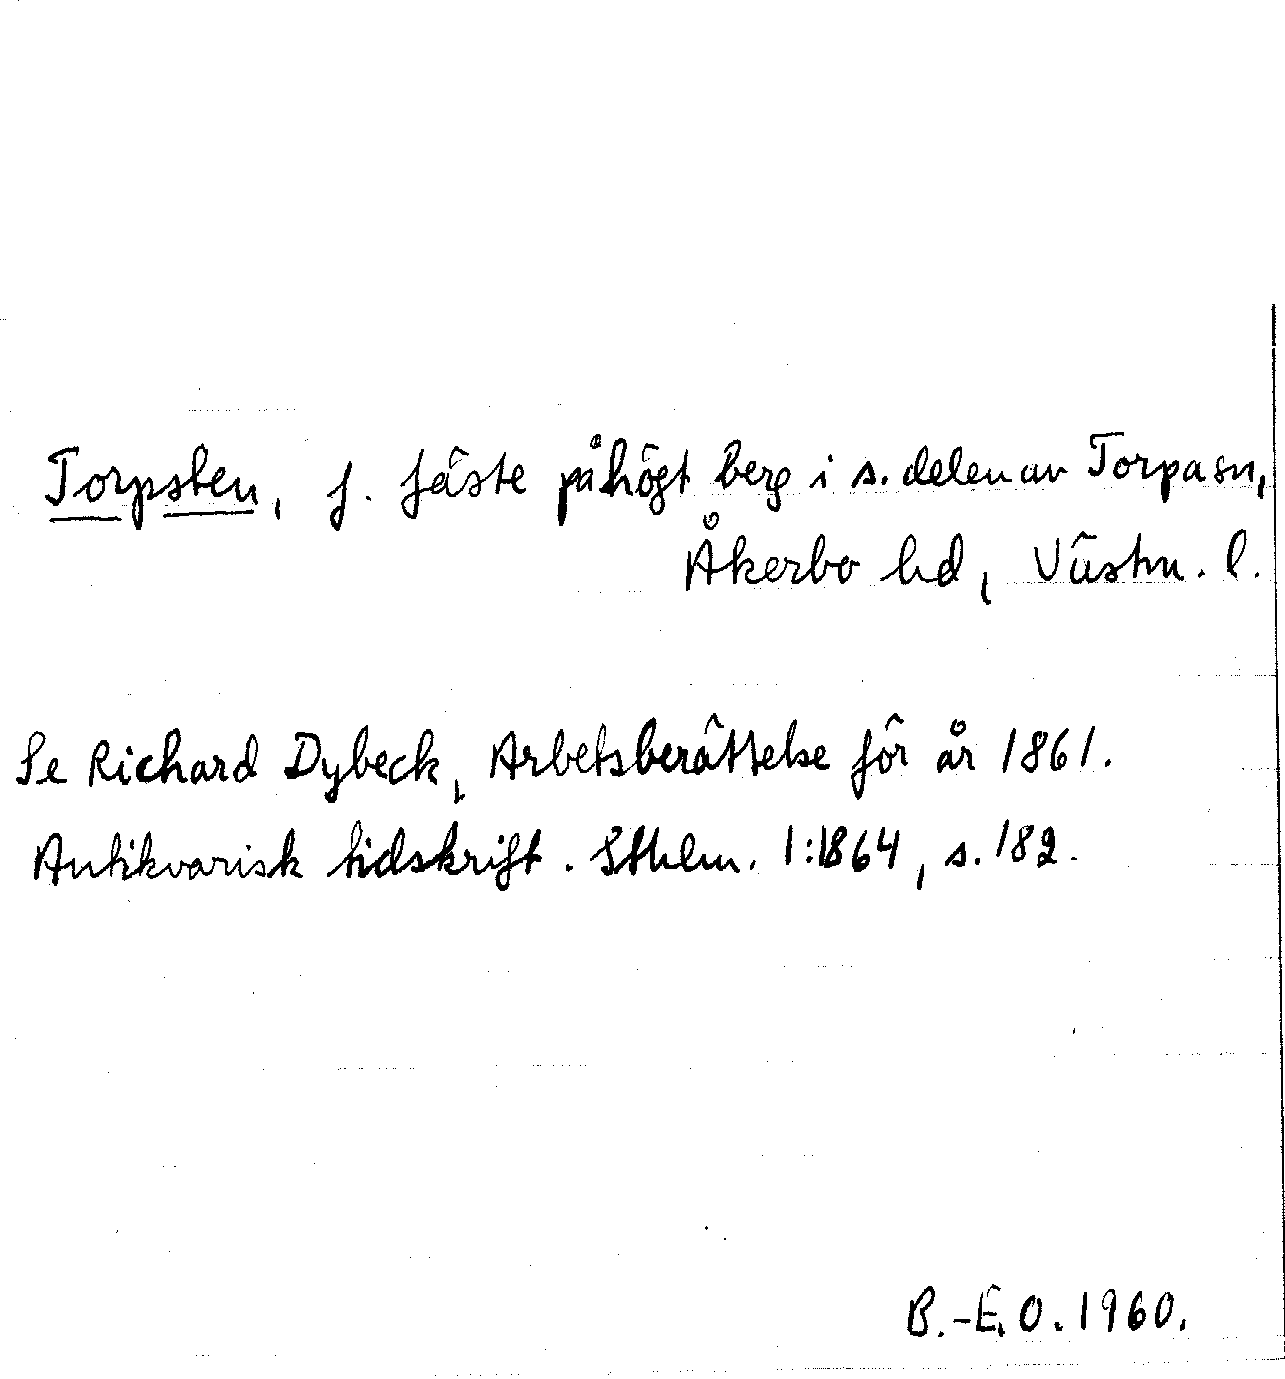 Torpsten, f. fäste på högt berg i s. delen av Torpa sn,
Åkerbo hd, Västm. l.
Se Richard Dybeck, Arbetsberättelse för år 1861.
Antikvarisk tidskrift. Sthlm. 1:1864, s. 182.
B.-E.O. 1960.